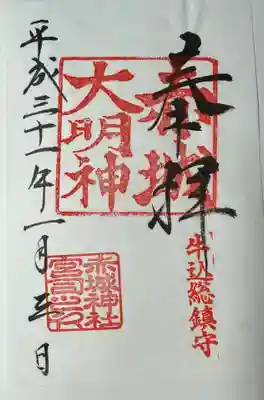 牛込総鎮守
奉拝
赤城
大明神
赤城神社
宮司之印
平成三十一年一月三日